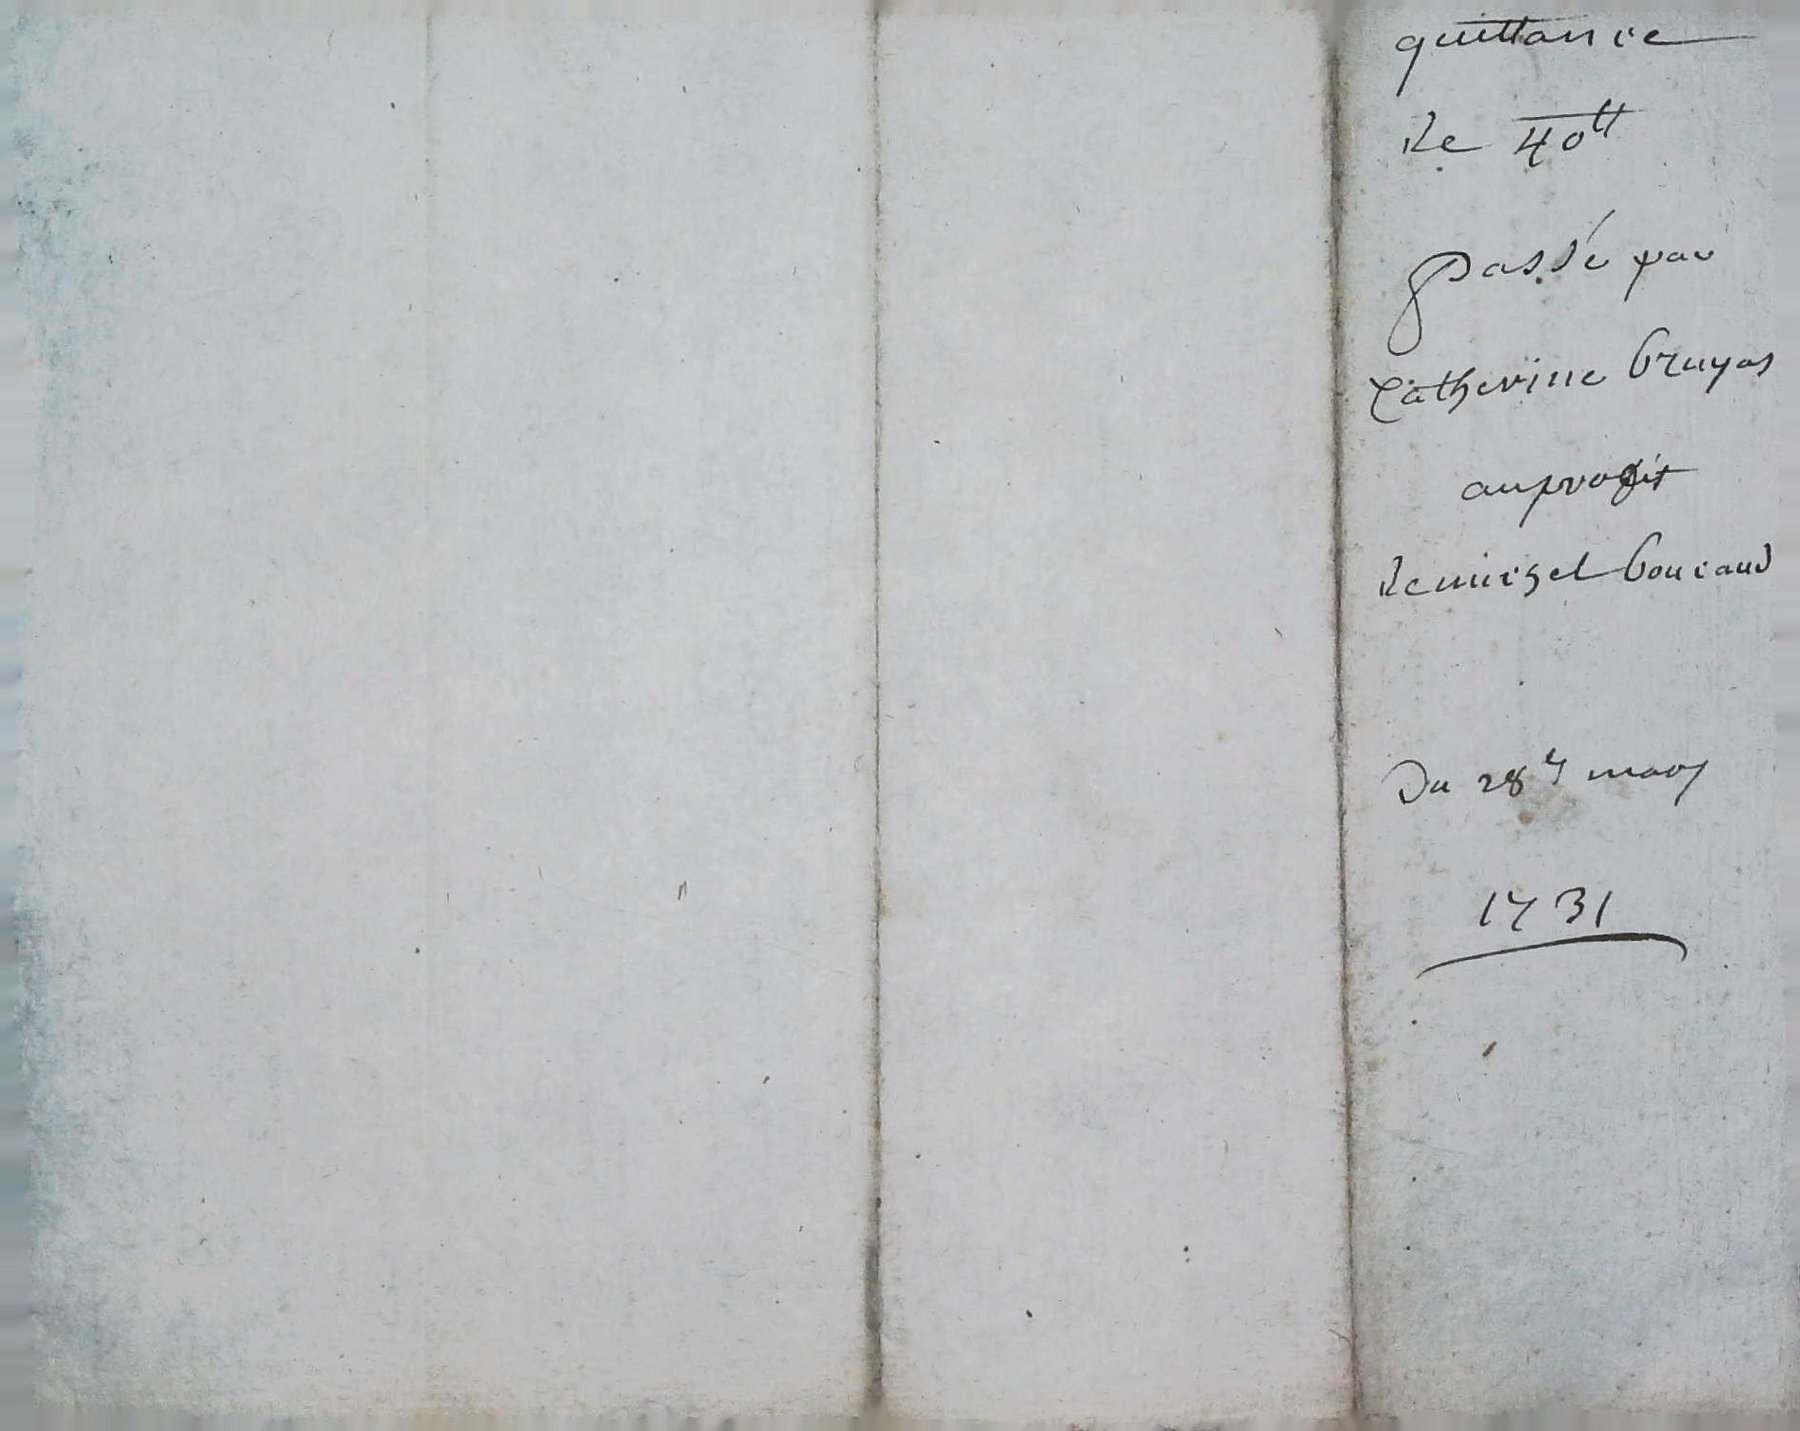 quittance
de 40ᵗᵗ
passé par
Catherine bruyas
au profit
de michel boucaud
Du 28ᵉ mars
1731